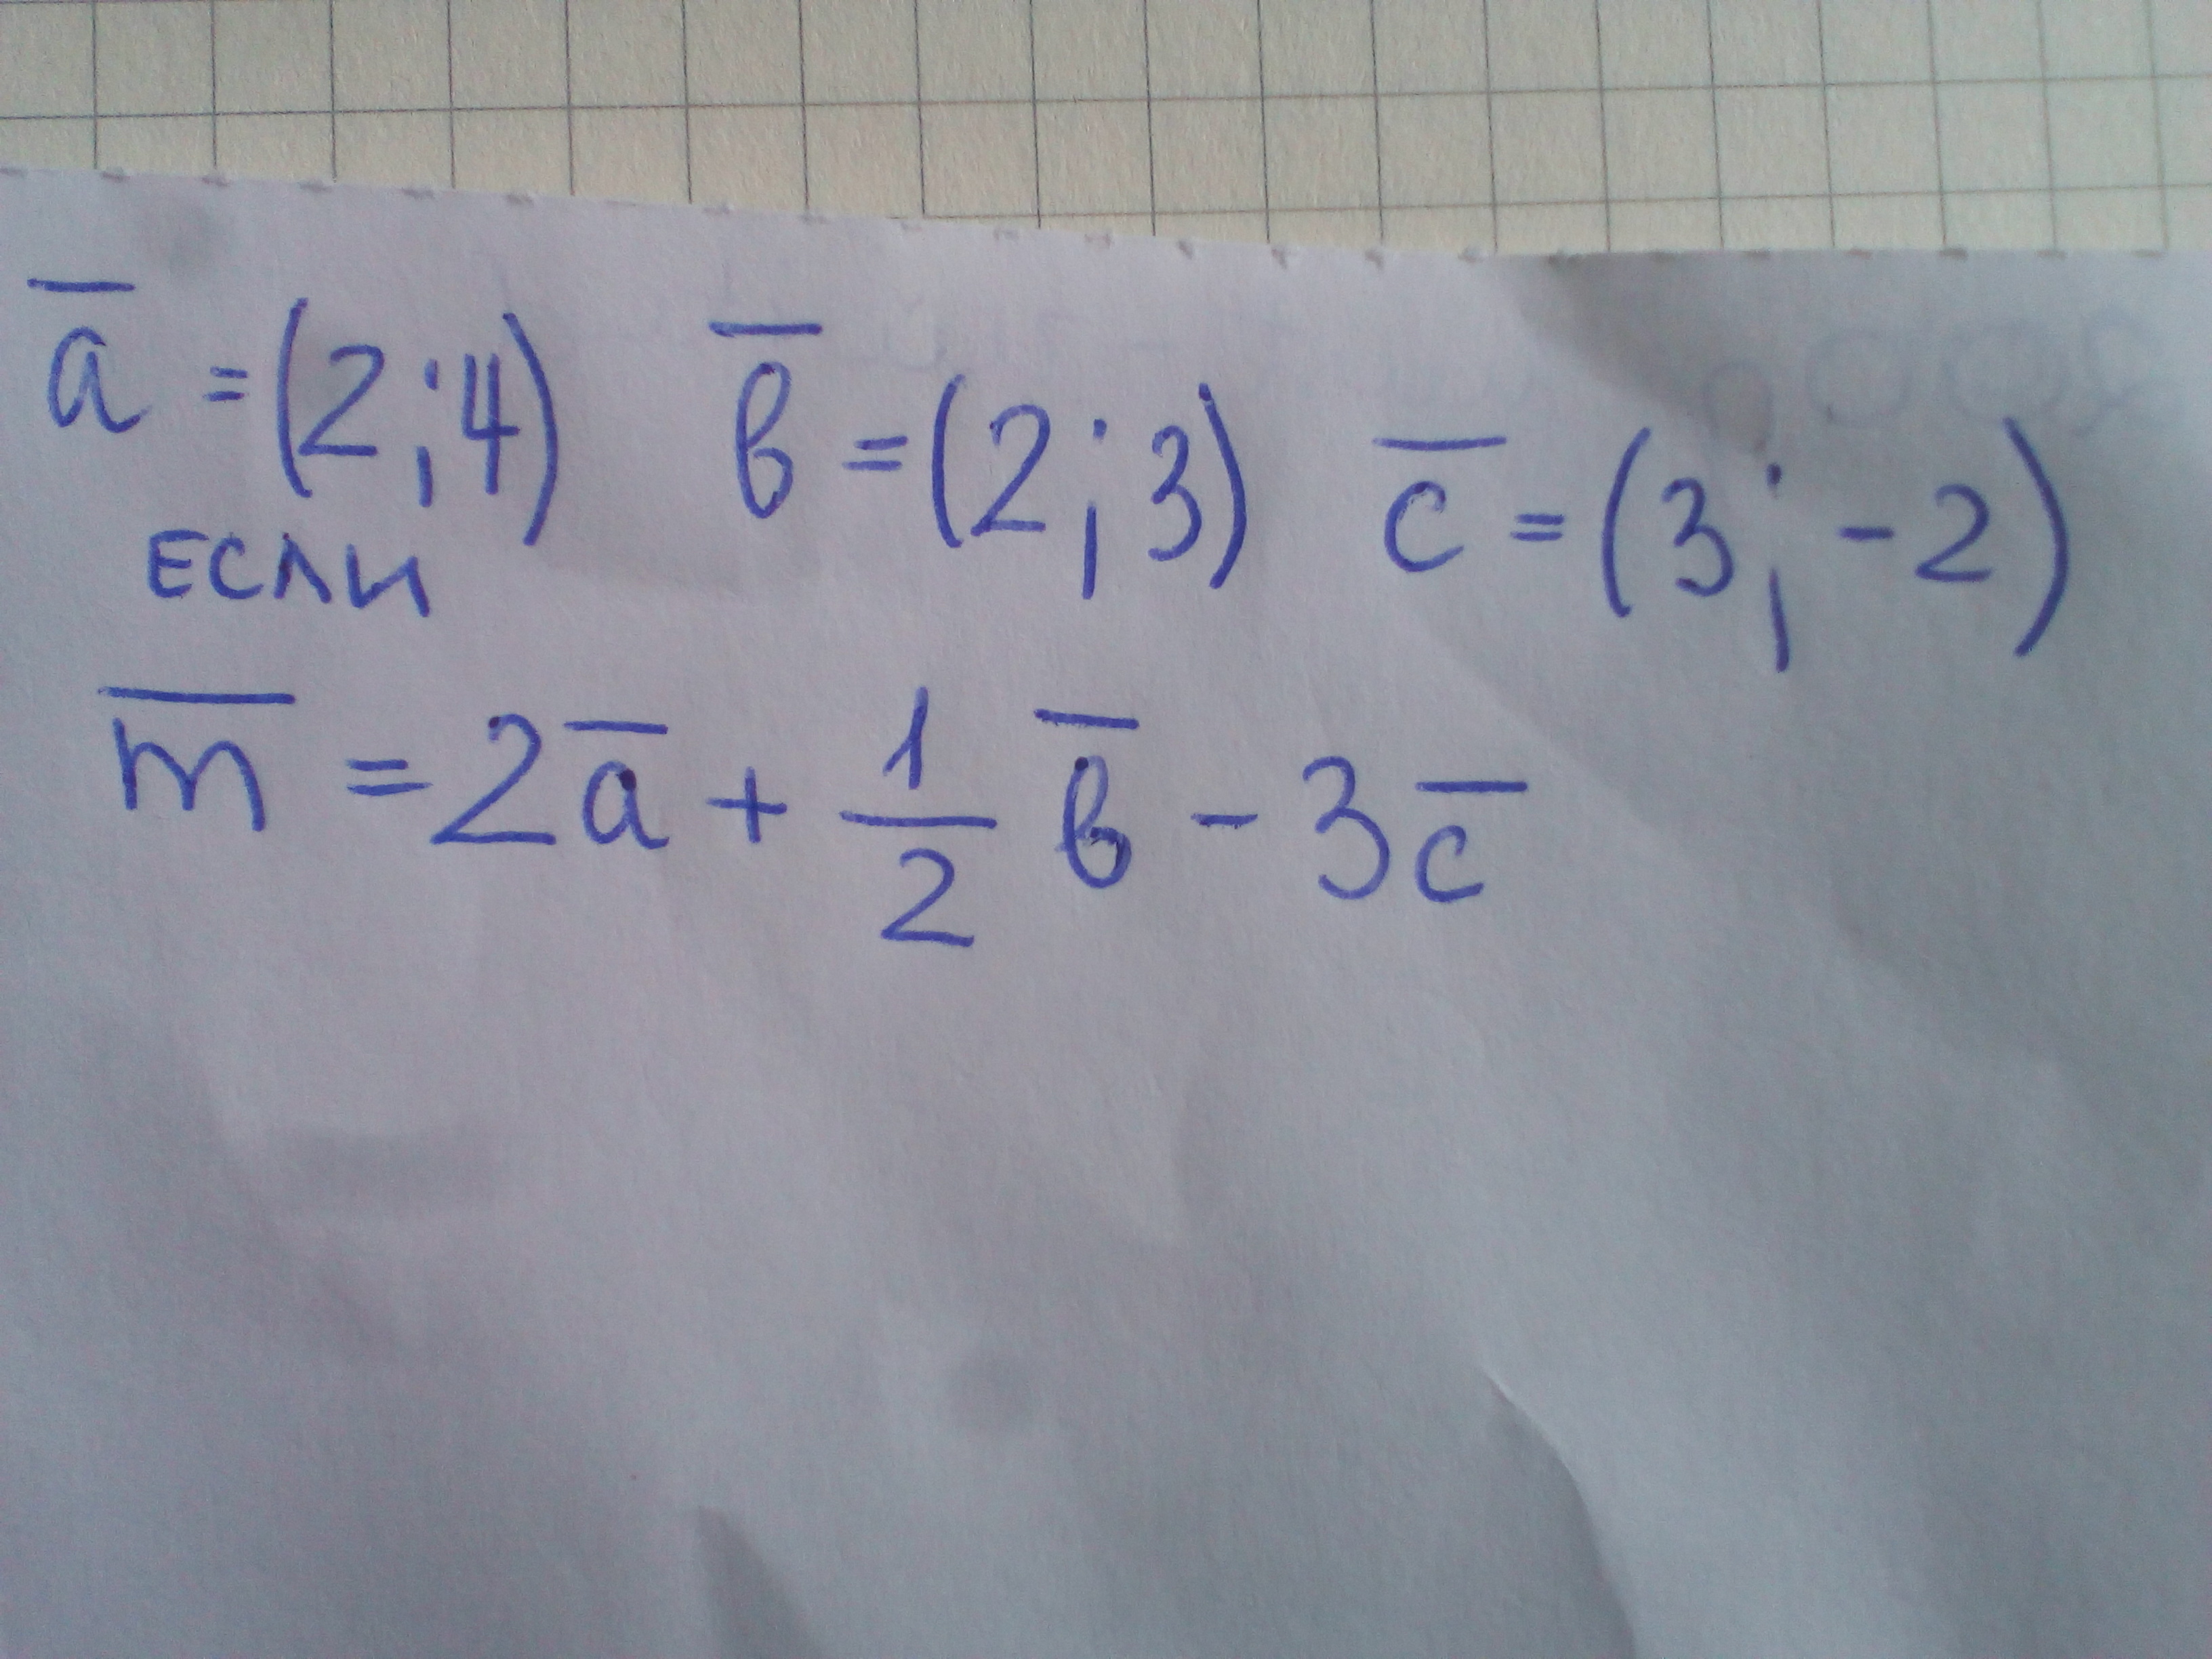 a̅ = (2;4) b̅ = (2;3) c̅ = (3;-2)
если
m̅ = 2a̅ + 1/2 b̅ - 3c̅